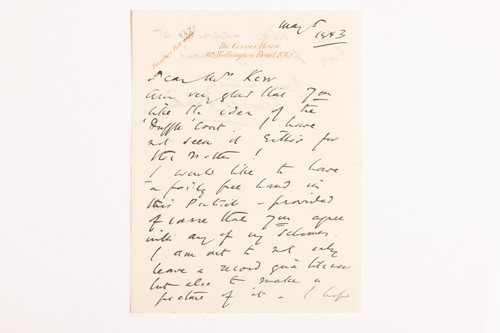 May 5
1943
The Corner House
Wellington Road, N.W.8
Dear Mrs Kerr
Am very glad that you
like the idea of the
'Duffle' Coat. I have
not seen it either for
the matter!
I would like to have
a fairly free hand in
this Portrait - provided
of course that you agree
with any of my schemes.
I am out to not only
leave a record
but also to make a
picture of it. I hope